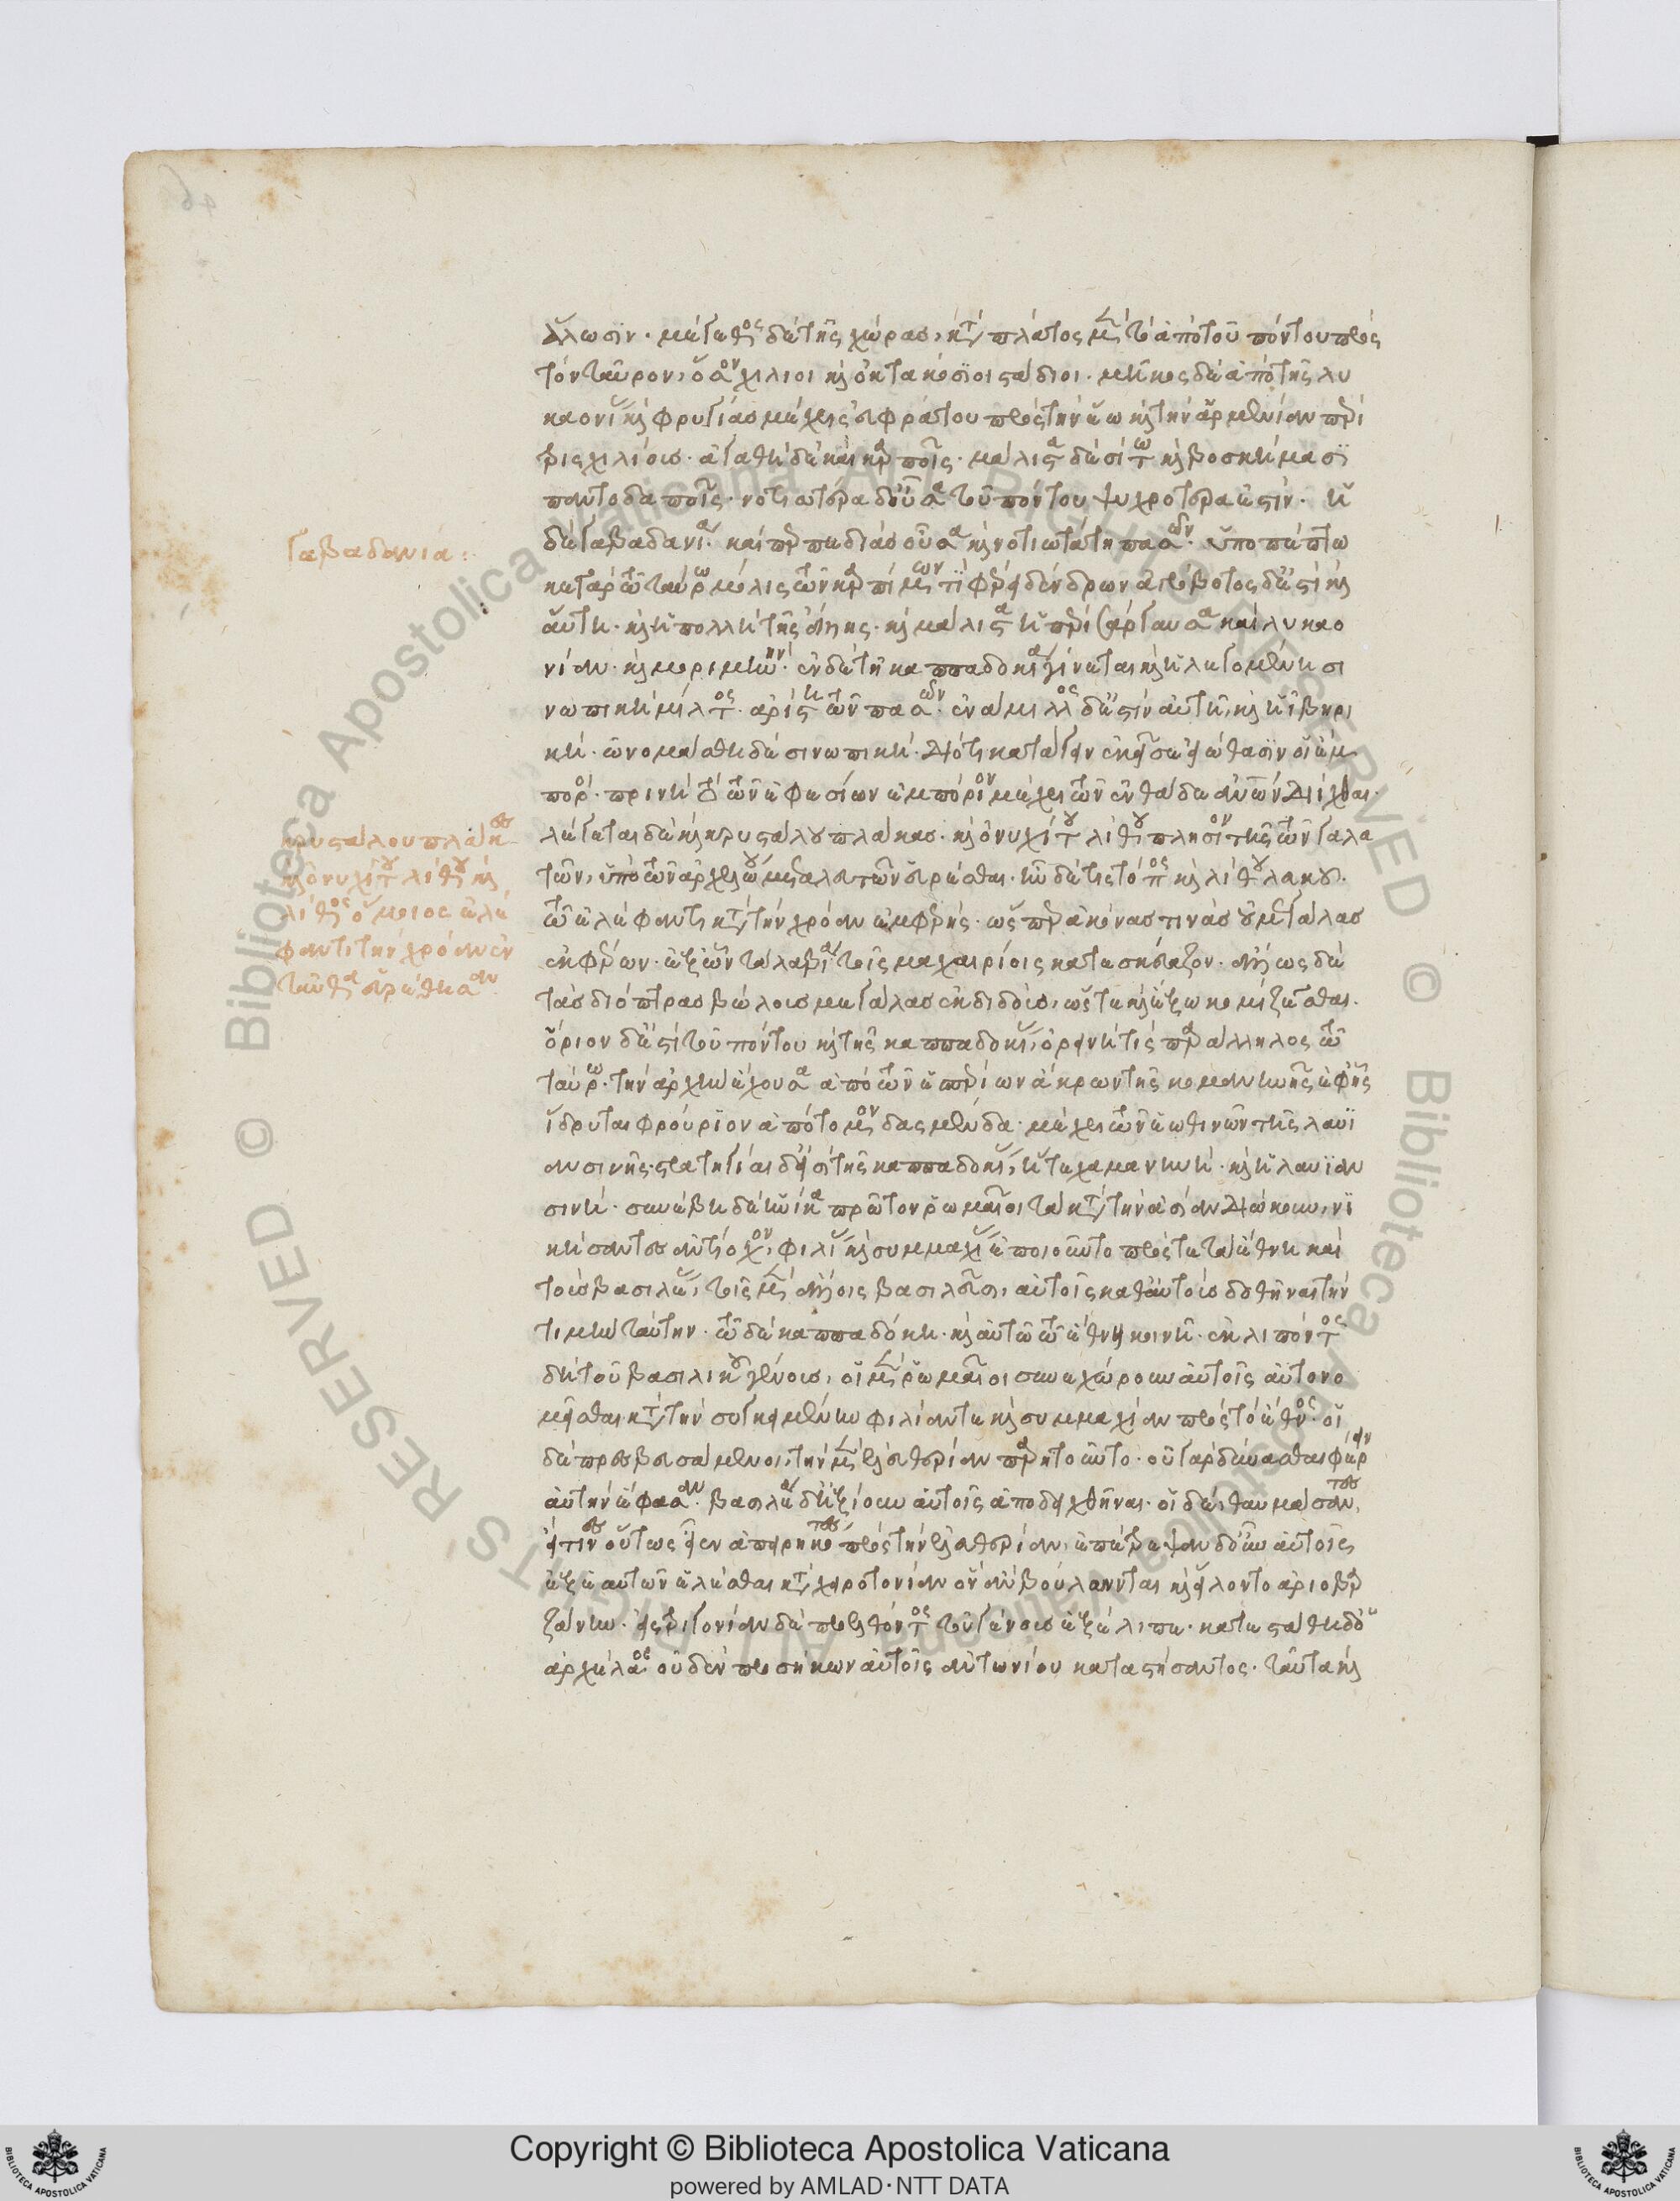 ἅλωσιν. μέγεθος δὲ τῆς χώρας, κατὰ πλάτος μὲν τὸ ἀπὸ τοῦ πόντου πρὸς
τὸν ταῦρον, ὅσον χίλιοι καὶ ὀκτακόσιοι στάδιοι. μῆκος δὲ ἀπὸ τῆς λυ
καονίας καὶ φρυγίας μέχρις εὐφράτου πρὸς τὴν ἕω καὶ τὴν ἀρμενίαν περὶ
τρισχιλίους. ἀγαθὴ δὲ καὶ καρποῖς. μάλιστα δὲ σίτω καὶ βοσκήμασι
παντοδαποῖς. νοτιωτέρα δ' οὖσα τοῦ πόντου ψυχροτέρα ἐστίν. ἡ
δὲ γαβαδανία. καίπερ πεδιὰς οὖσα καὶ νοτιωτάτη πασῶν. ὑποπέπτω
κε γὰρ τῶ ταύρω μόλις τῶν καρπίμων τι φέρει δένδρων ἀγρόβοτος δ' ἐστὶ καὶ
αὕτη. καὶ ἡ πολλὴ τῆς ἄλλης. καὶ μάλιστα ἡ περὶ γαρσαυϊρα καὶ λυκαο
νίαν. καὶ μοριμηνήν. ἐν δὲ τῆ καππαδοκία γίνεται καὶ ἡ λεγομένη σι
νωπικὴ μίλτος. ἀρίστη τῶν πασῶν. ἐνάμιλλος δ' ἐστὶν αὐτῆ, καὶ ἡ ἰβηρι
κή. ὠνομάσθη δὲ σινωπική. διότι κατάγειν ἐκεῖσε εἰώθασιν οἱ ἔμ
ποροι. πρὶν ἢ τὸ τῶν ἐφεσίων ἐμπόριον μέχρι τῶν ἐνθάδε ἀνθρώπων διῖχθαι.
λέγεται δὲ καὶ κρυστάλου πλάκας. καὶ ὀνυχίτου λίθου πλησίον τῆς τῶν γαλα
τῶν, ὑπὸ τῶν ἀρχελάου μεταλλευτῶν εὑρέσθαι. ἦν δέ τις τόπος καὶ λίθου λευκοῦ.
τῶ ἐλέφαντι κατὰ τὴν χρόαν ἐμφερής. ὥσπερ ἀκόνας τινὰς οὐ μεγάλας
ἐκφέρων. ἐξ ὧν τὰ λαβία τοῖς μαχαιρίοις κατεσκεύαζον. ἄλλως δὲ
τὰς διόπτρας βώλους μεγάλας ἐκδιδούς, ὥστε καὶ ἔξω κομίζεσθαι.
ὅριον δ' ἐστὶ τοῦ πόντου καὶ τῆς καππαδοκίας, ὀρεινή τις παράλληλος τῶ
ταύρω. τὴν ἀρχὴν ἔχουσα ἀπὸ τῶν ἑσπερίων ἄκρων τῆς κομανηνῆς ἐφ' ἧς
ἵδρυται φρούριον ἀπότομον δασμένδα. μέχρι τῶν ἑωθινῶν τῆς λαυϊ
ανσινῆς. στρατηγίαι δ' εἰσὶ τῆς καππαδοκίας, ἥ τε χαμανηνή. καὶ ἡ λαυϊαν
σινή. συνέβη δὲ ἡνίκα πρῶτον ῥωμαῖοι τὰ κατὰ τὴν ἀσίαν διώκουν, νι
κήσαντες ἀντίοχον, φιλίας καὶ συμμαχίας ἐποιοῦντο πρός τε τὰ ἔθνη καὶ
τοὺς βασιλέας, τοῖς μὲν ἄλλοις βασιλεῦσι, αὐτοῖς καθ' ἑαυτοὺς δοθῆναι τὴν
τιμὴν ταύτην. τῶ δὲ καππαδόκη. καὶ αὐτῶ τῶ ἔθνει κοινῆ. ἐκλιπόντος
δὴ τοῦ βασιλικοῦ γένους, οἱ μὲν ῥωμαῖοι συνεχώρουν αὐτοῖς αὐτονο
μεῖσθαι κατὰ τὴν συγκειμένην φιλίαν τε καὶ συμμαχίαν πρὸς τὸ ἔθνος. οἱ
δὲ πρεσβευσάμενοι, τὴν μὲν ἐλευθερίαν παρῃτοῦντο. οὐ γὰρ δύνασθαι φέρειν
αὐτὴν ἔφασαν. βασιλέα δ' ἠξίουν αὐτοῖς ἀποδειχθῆναι. οἱ δέ, θαυμάσαντες,
εἴ τινες οὕτως εἶεν ἀπειρηκότες πρὸς τὴν ἐλευθερίαν, ἐπέτρεψαν δ' οὖν αὐτοῖς
ἐξ ἑαυτῶν ἑλέσθαι κατὰ χειροτονίαν ὃν ἂν βούλωνται καὶ εἵλοντο ἀριοβαρ
ζάνην. εἰς τριγονίαν δὲ προελθόντος τοῦ γένους ἐξέλιπε. κατεστάθη δ' ὁ
ἀρχέλαος οὐδὲν προσήκων αὐτοῖς ἀντωνίου καταστήσαντος. ταῦτα καὶ
γαβαδανία:
κρυστάλου πλάκες
καὶ ὀνυχίτου λίθου καὶ
λίθος ὅμοιος ἐλέ
φαντι τὴν χρόαν ἐν
ταῦθα εὑρέθησαν
Copyright © Biblioteca Apostolica Vaticana
powered by AMLAD·NTT DATA